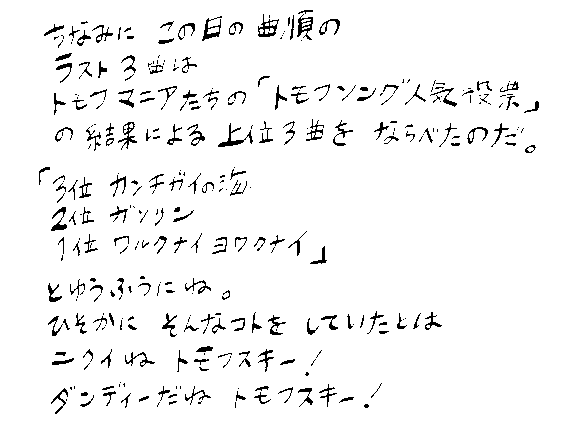 ちなみに この日の曲順の
ラスト3曲は
トモフマニアたちの「トモフソング人気投票」
の結果による上位3曲を ならべたのだ。
「3位 カンチガイの海
2位 ガソリン
1位 ワルクナイ ヨワクナイ」
とゆうふうにね。
ひそかに そんなコトを していたとは
ニクイね トモフスキー!
ダンディーだね トモフスキー!